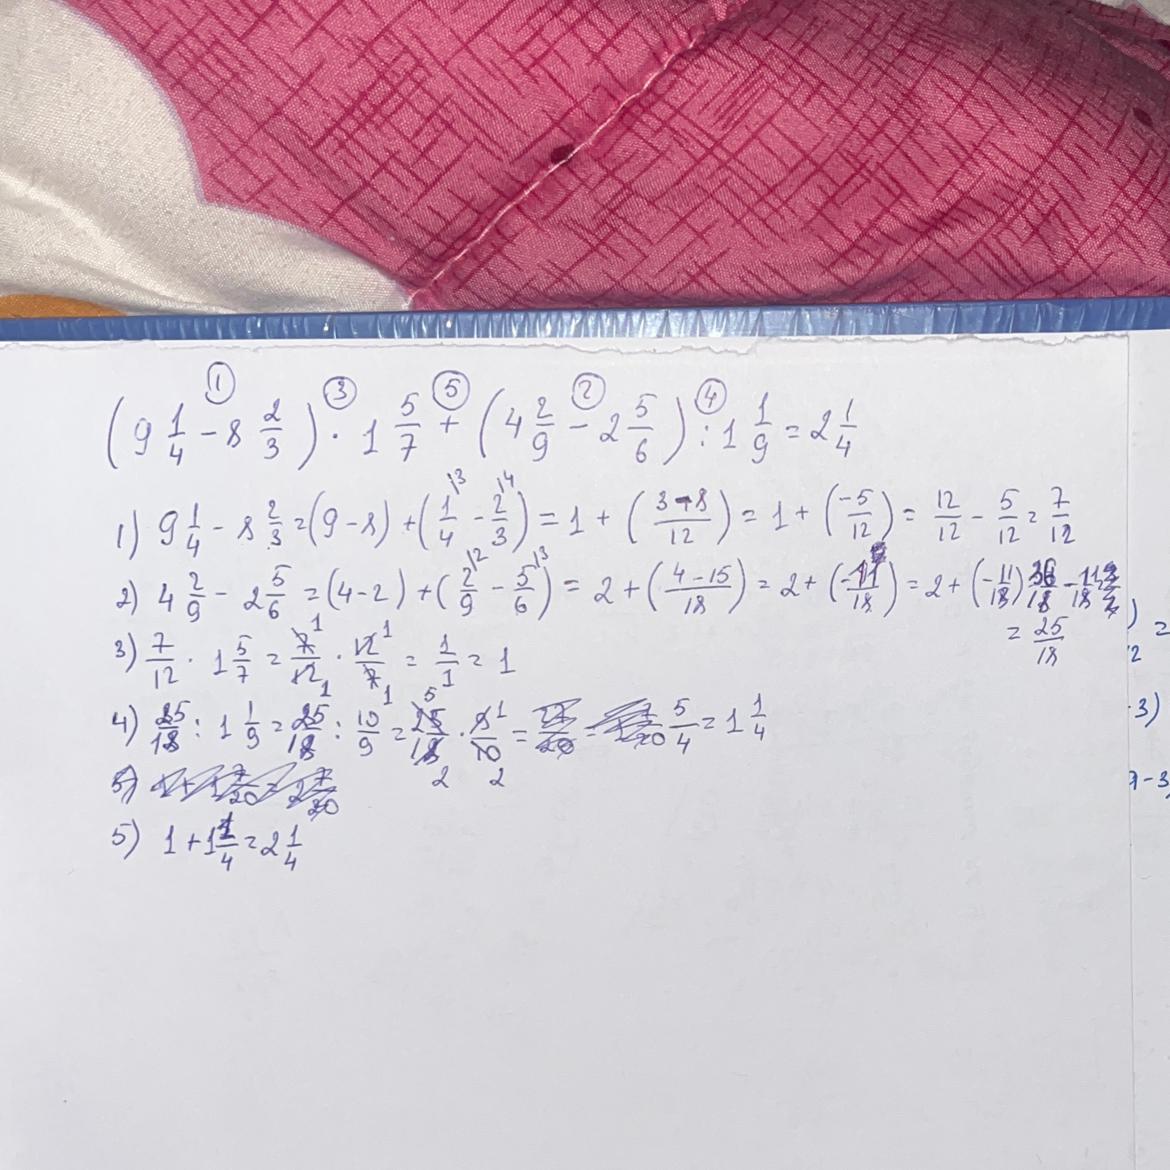 ① ③ ⑤ ② ④
(9 1/4 - 8 2/3) · 1 5/7 + (4 2/9 - 2 5/6) : 1 1/9 = 2 1/4
1) 9 1/4 - 8 2/3 = (9 - 8) + (1/4 \3 - 2/3 \4) = 1 + (3-8/12) = 1 + (-5/12) = 12/12 - 5/12 = 7/12
2) 4 2/9 - 2 5/6 = (4-2) + (2/9 \2 - 5/6 \3) = 2 + (4-15/18) = 2 + (-11/18) = 2 + (-11/18) 36/18 - 11/18
= 25/18
3) 7/12 · 1 5/7 = 7/12 · 12/7 = 1/1 = 1
4) 25/18 : 1 1/9 = 25/18 : 10/9 = 25/18 · 9/10 = 5/4 = 1 1/4
5) 1 + 1 1/4 = 2 1/4
) =
2
3)
9-3